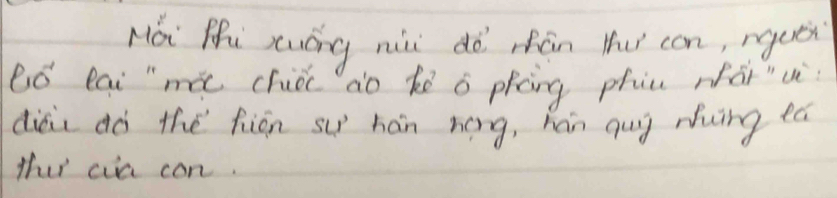 Mỗi khi xuống núi để nhận thư con, người
bố lại "mặc chiếc áo kẻ ô phẳng phiu nhất" vì:
điều đó thể hiện sự trân trọng, trân quý những lá
thư của con.